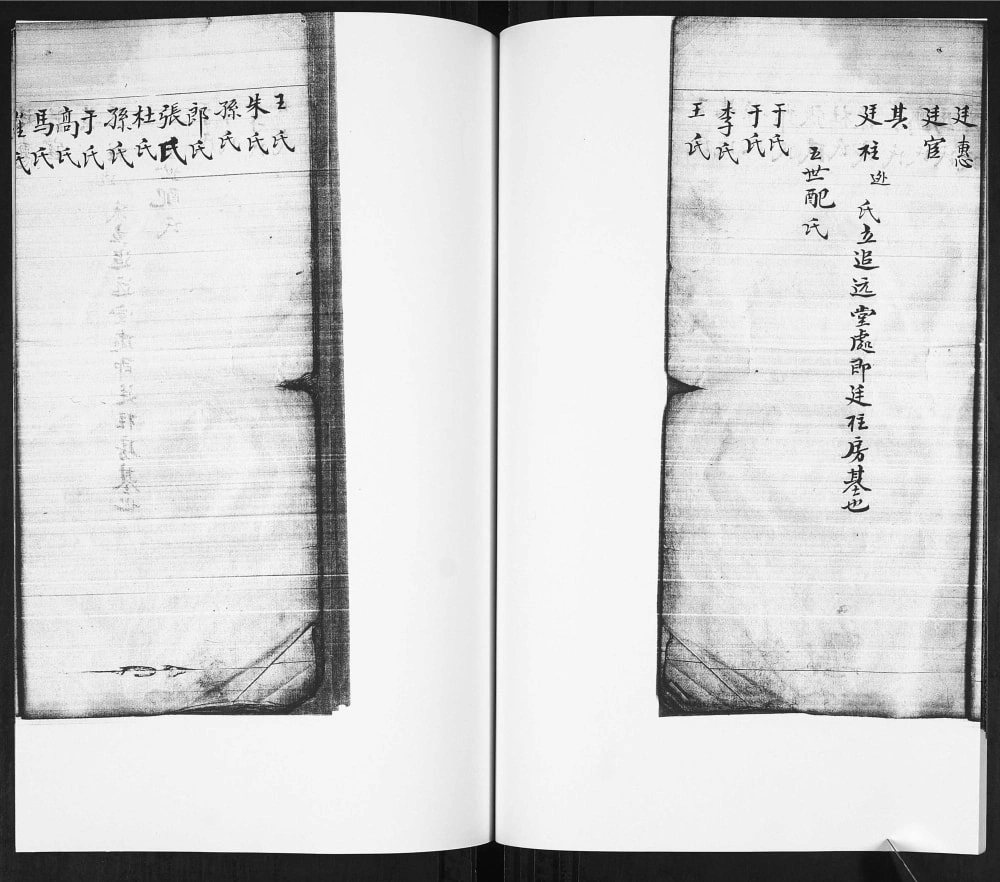 廷惠
廷官
其
廷柱 逊
氏立追远堂處即廷柱房基也
五世配氏
于氏
于氏
李氏
王氏
王氏
朱氏
孫氏
郎氏
張氏
杜氏
孫氏
于氏
高氏
馬氏
崔氏